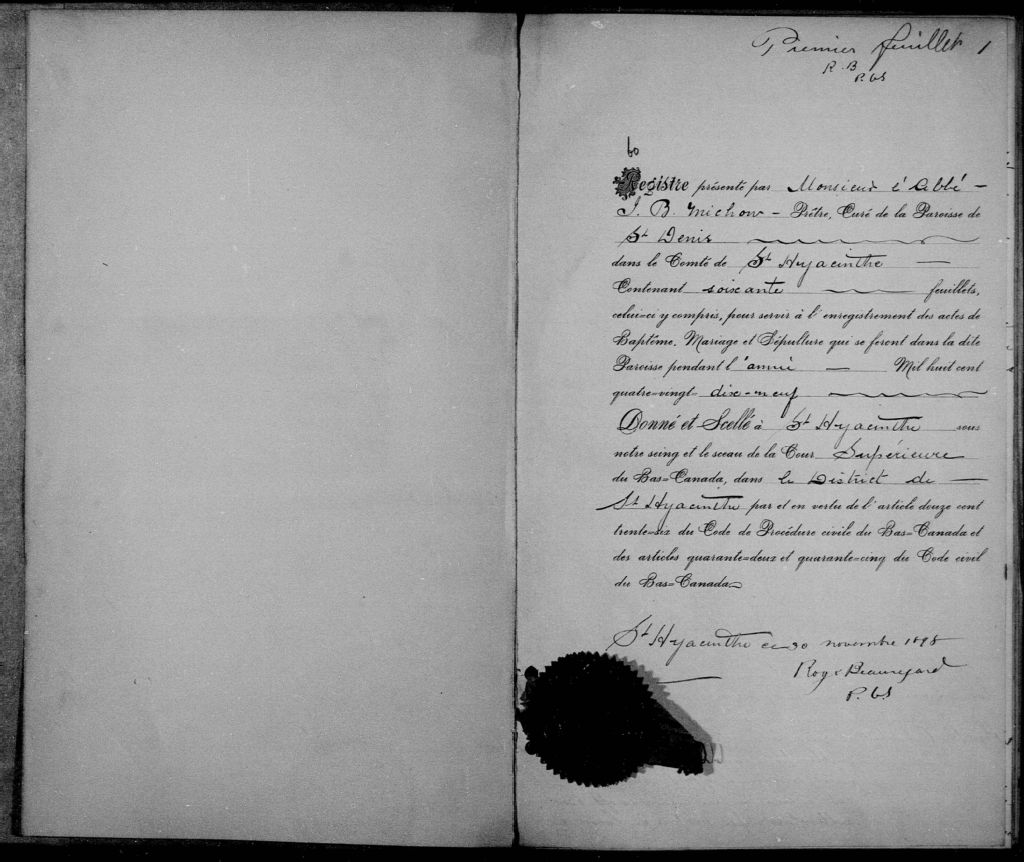 Premier feuillet 1
R. B
P. C. S
60
Registre présenté par Monsieur l'Abbé —
J. B. Michon — Prêtre, Curé de la Paroisse de
St Denis
dans le Comté de St Hyacinthe —
Contenant soixante — feuillets,
celui=ci y compris, pour servir à l'enregistrement des actes de
Baptême, Mariage et Sépulture qui se feront dans la dite
Paroisse pendant l'année — Mil huit cent
quatre=vingt= dix-neuf
Donné et Scellé à St Hyacinthe sous
notre seing et le sceau de la Cour Supérieure
du Bas=Canada, dans le District de —
St Hyacinthe par et en vertu de l'article douze cent
trente=six du Code de Procédure civile du Bas=Canada et
des articles quarante=deux et quarante=cinq du Code civil
du Bas=Canada
St Hyacinthe ce 30 novembre 1898
Roy & Beauregard
P. C. S